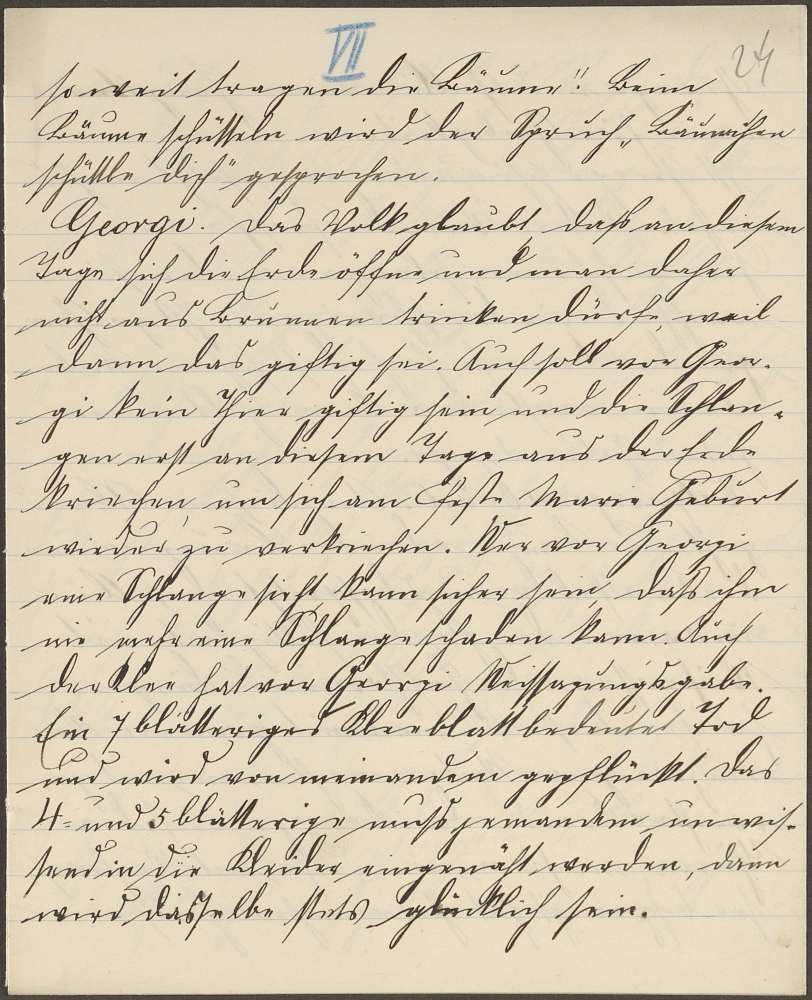 VII
24
so weit tragen die Bäume". Beim
Bäume schütteln wird der Spruch „Bäumchen
schüttle dich" gesprochen.
Georgi. Das Volk glaubt, daß an diesem
Tage sich die Erde öffne und man daher
nicht aus Brunnen trinken dürfe, weil
dann das giftig sei. Auch soll vor Geor-
gi kein Thier giftig sein und die Schlan-
gen erst an diesem Tage aus der Erde
kriechen, um sich am Feste Marie Geburt
wieder zu verkriechen. Wer vor Georgi
eine Schlange sieht, kann sicher sein, daß ihm
nie mehr eine Schlange schaden kann. Auch
der Klee hat vor Georgi Weissagungsgabe.
Ein 7 blätteriges Kleeblatt bedeutet Tod
und wird von niemandem gepflückt. Das
4- und 5 blätterige muß jemandem unwis-
send in die Kleider eingenäht werden, dann
wird dasselbe stets glücklich sein.